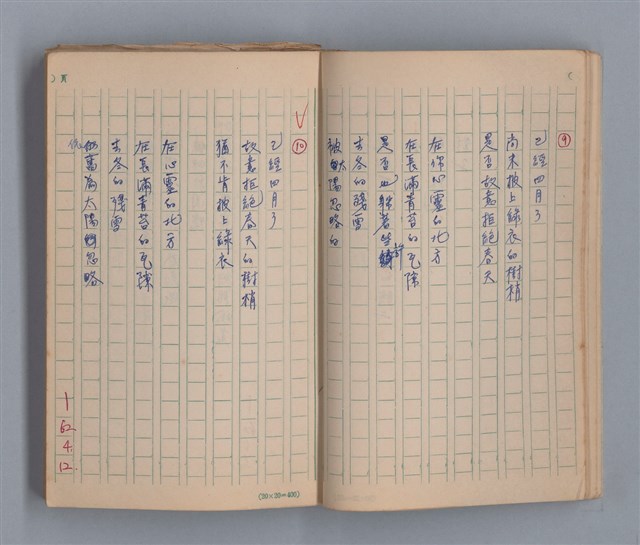 ⑨
已經四月了
尚未披上綠衣的樹梢
是否故意拒絕春天
在你心靈的北方
在長滿青苔的瓦隙
是否也躲著些許
去冬的殘雪
被太陽忽略的
⑩
已經四月了
故意拒絕春天的樹梢
猶不肯披上綠衣
在心靈的北方
在長滿青苔的瓦隙
去冬的殘雪
依舊為太陽忽略
62.
4.
12.
(20×20=400)
頁